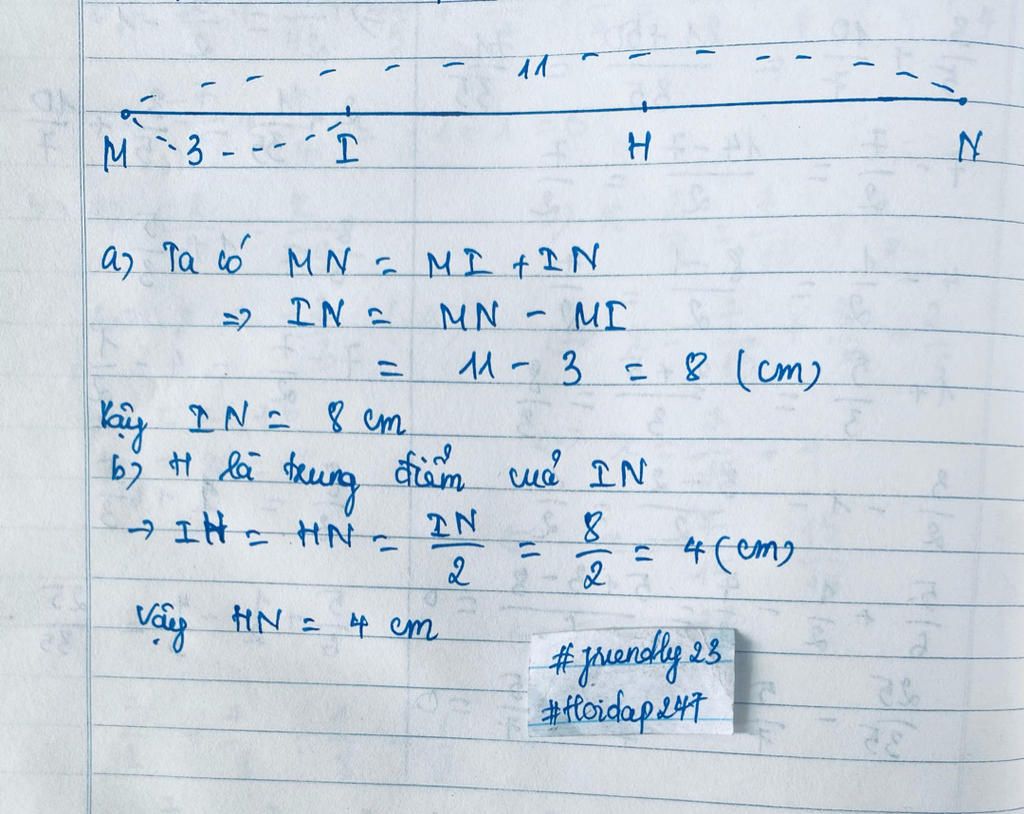 11
M 3 I H N
a) Ta có MN = MI + IN
=> IN = MN - MI
= 11 - 3 = 8 (cm)
Vậy IN = 8 cm
b) H là trung điểm cuả IN
→ IH = HN = IN/2 = 8/2 = 4 (cm)
Vậy HN = 4 cm
#friendly23
#Hoidap247